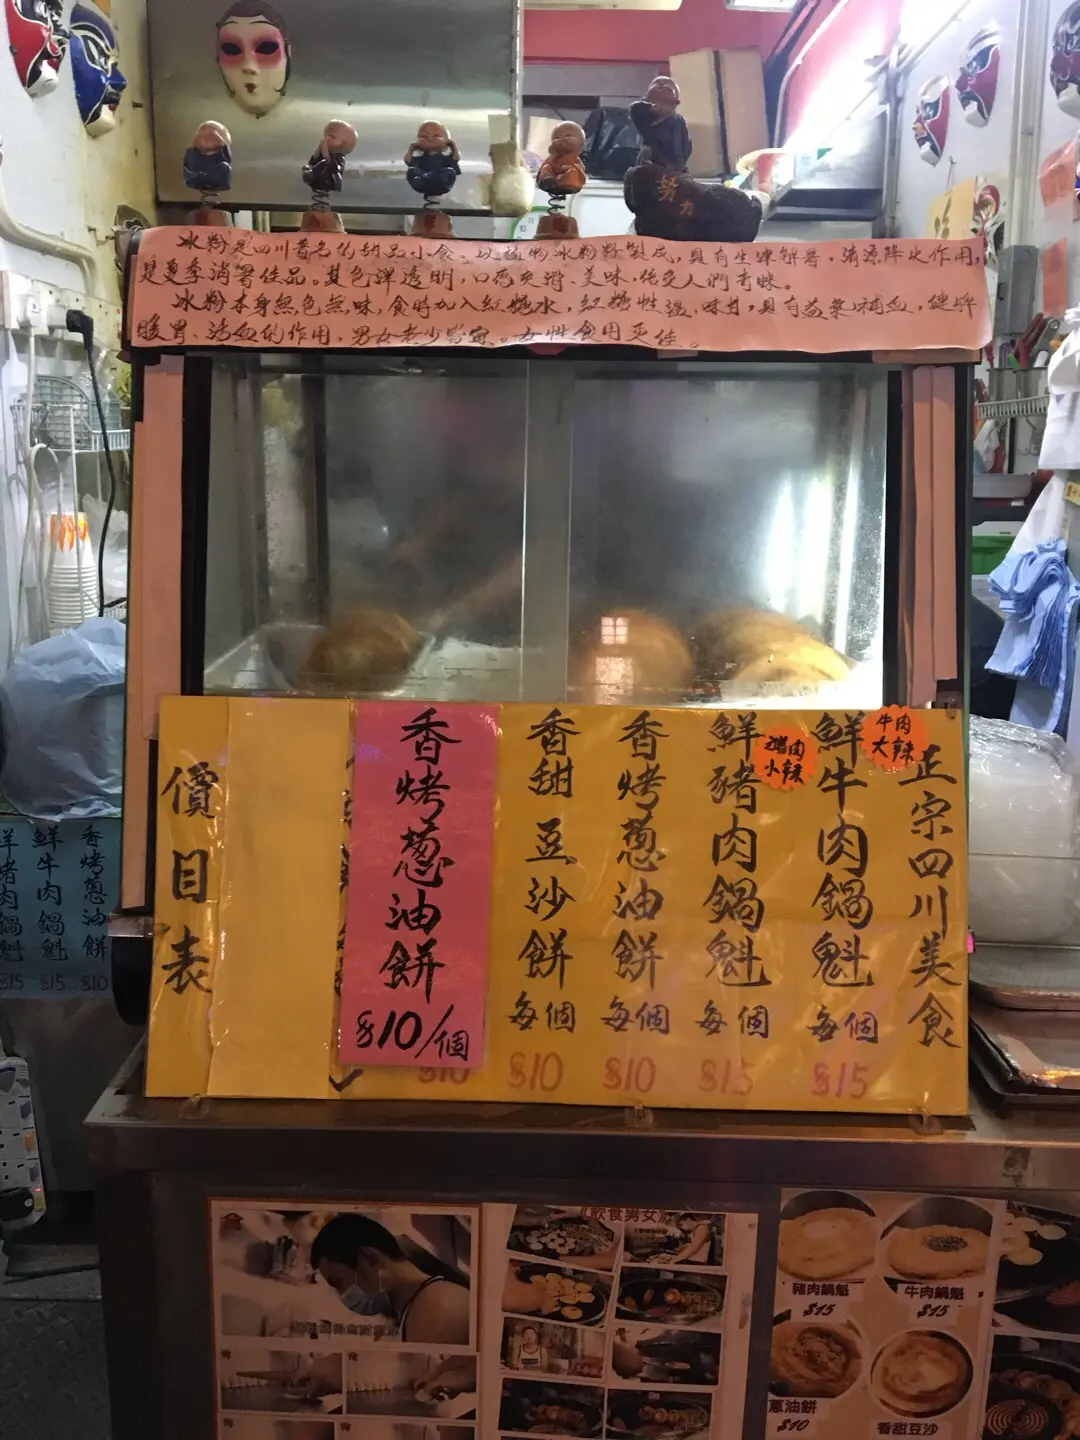 努力
冰粉是四川著名的甜品小食。以植物冰粉籽製成，具有生津解暑，清涼降火作用，
是夏季消暑佳品。其色澤透明，口感爽滑、美味，倍受人們青睞。
冰粉本身無色無味，食時加入紅糖水，紅糖性溫，味甘，具有益氣補血，健脾
暖胃、活血的作用，男女老少皆宜。女性食用更佳。
正宗四川美食
牛肉
大辣
鮮牛肉鍋魁 每個 $15
豬肉
小辣
鮮豬肉鍋魁 每個 $15
香烤蔥油餅 每個 $10
香甜豆沙餅 每個 $10
香烤蔥油餅 $10/個
$10
價目表
香烤蔥油餅 $10
鮮牛肉鍋魁 $15
鮮豬肉鍋魁 $15
《飲食男女》
豬肉鍋魁
$15
牛肉鍋魁
$15
蔥油餅
$10
香甜豆沙